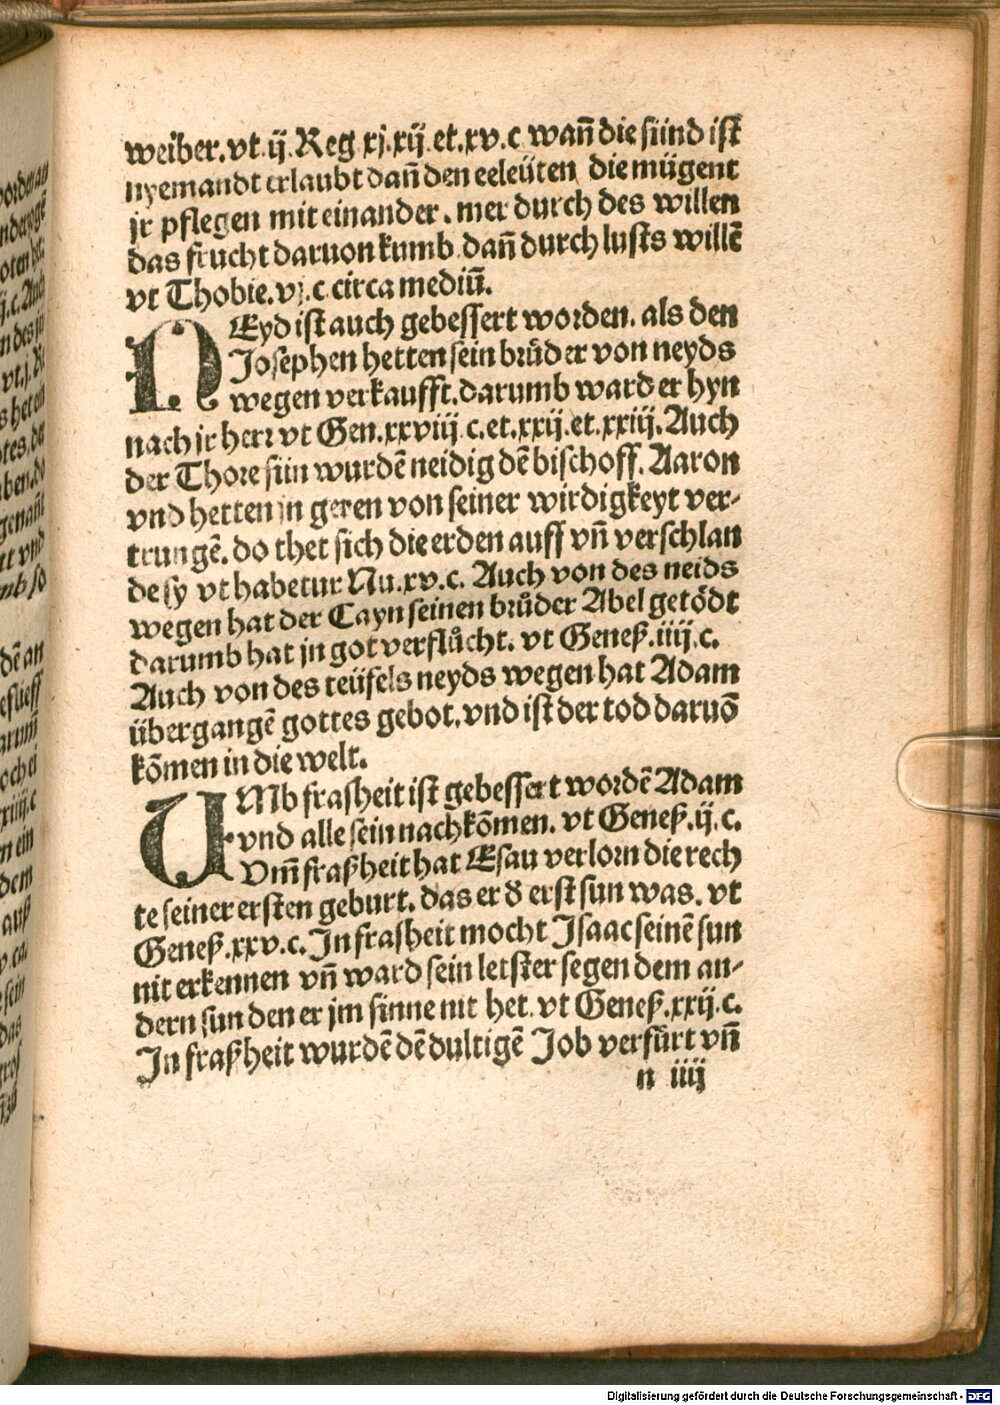 weiber. vt. ij. Reg xj. xij. et. xv. c wañ die sünd ist
nyemandt erlaubt dañ den eeleüten die mügent
jr pflegen mit einander. mer durch des willen
das frucht daruon kumb dañ durch lusts willē
vt Thobie. vj. c circa mediū.
NEyd ist auch gebessert worden. als den
Josephen hetten sein brůder von neyds
wegen verkaufft. darumb ward er hyn
nach jr herr vt Gen. xxviij c. et. xxij. et. xxiij. Auch
der Thore sün wurdē neidig dē bischoff. Aaron
vnd hetten jn geren von seiner wirdigkeyt ver-
trungē. do thet sich die erden auff vñ verschlan
de sy vt habetur Nu. xv. c. Auch von des neids
wegen hat der Cayn seinen brůder Abel getödt
darumb hat jn got verflůcht. vt Geneß. iiij. c.
Auch von des teüfels neyds wegen hat Adam
übergangē gottes gebot. vnd ist der tod daruō
kōmen in die welt.
UMb frasheit ist gebessert wordē Adam
vnd alle sein nachkōmen. vt Geneß. ij. c.
Vm̄ fraßheit hat Esau verlorn die rech
te seiner ersten geburt. das er d̕ erst sun was. vt
Geneß. xxv. c. Jn frasheit mocht Jsaac seinē sun
nit erkennen vñ ward sein letster segen dem an-
dern sun den er jm sinne nit het. vt Geneß. xxij. c.
Jn fraßheit wurdē dē dultigē Job verfürt vñ
n iiij
Digitalisierung gefördert durch die Deutsche Forschungsgemeinschaft - DFG